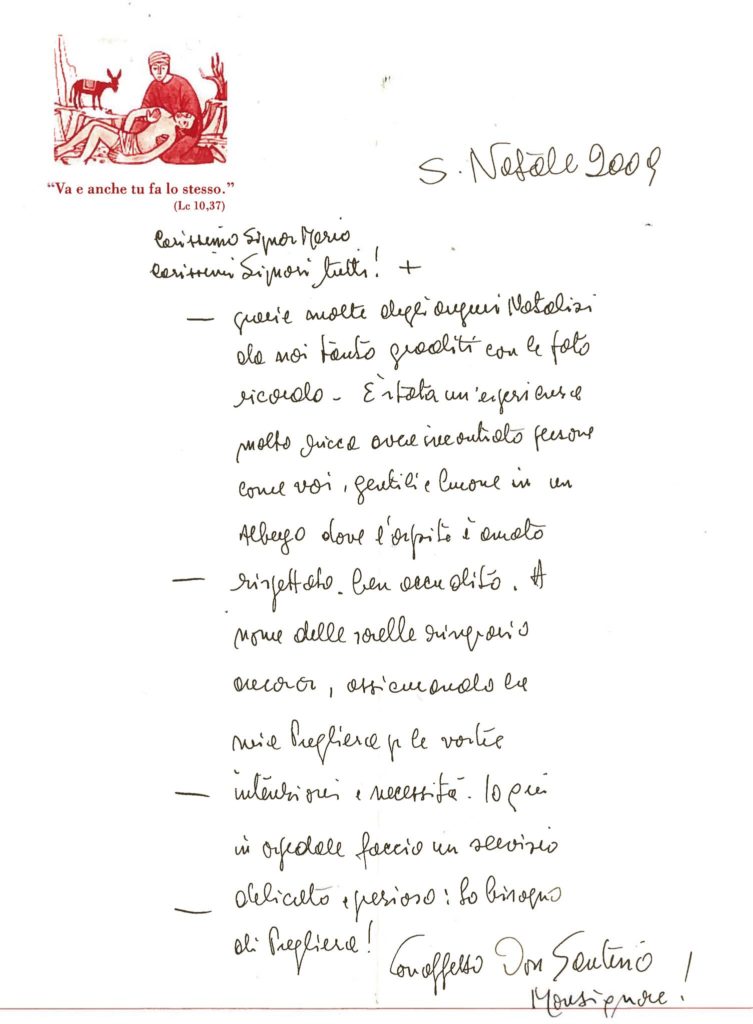 “Va e anche tu fa lo stesso.”
(Lc 10,37)
S. Natale 2009
Carissimo Signor Mario
Carissimi Signori tutti! +
— grazie molte degli auguri Natalizi
da noi tanto graditi con le foto
ricordo - È stata un'esperienza
molto ricca avere incontrato persone
come voi, gentili e buone in un
Albergo dove l'ospite è amato
— rispettato. ben accudito. A
nome delle sorelle ringrazio
ancora, assicurando la
mia Preghiera p le vostre
— intenzioni e necessità. Io qui
in ospedale faccio un servizio
— delicato e prezioso: ho bisogno
di Preghiera!
Con affetto Don Santino
Monsignore!